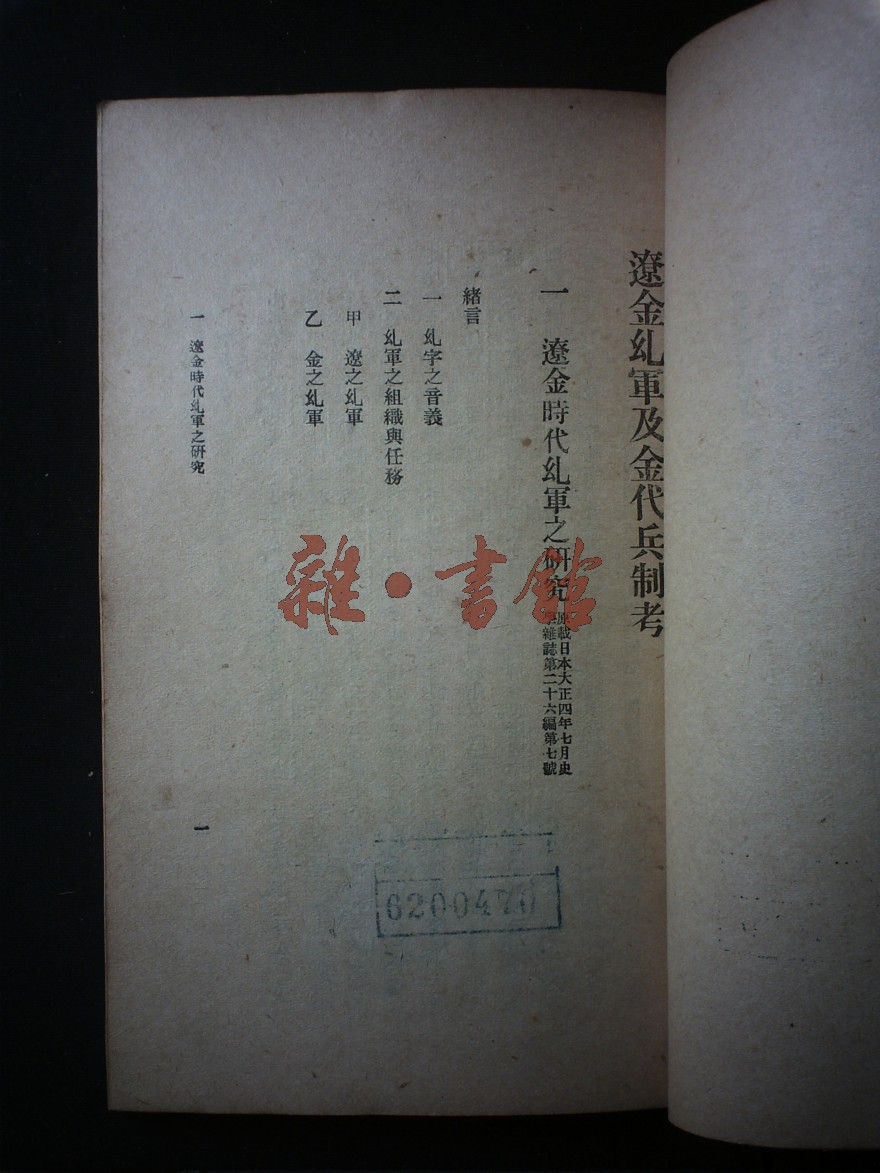 遼金乣軍及金代兵制考
一 遼金時代乣軍之研究
原載日本大正四年七月史
學雜誌第二十六編第七號
緒言
一 乣字之音義
二 乣軍之組織與任務
甲 遼之乣軍
乙 金之乣軍
一 遼金時代乣軍之研究
一
雜·書館
6200470